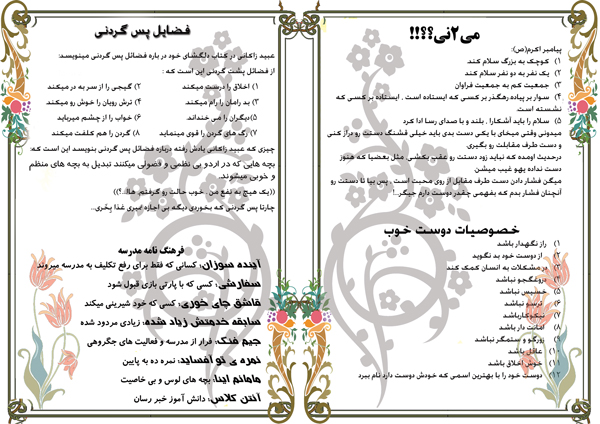 می۲نی؟؟؟!!!
پیامبر اکرم(ص):
۱) کوچک به بزرگ سلام کند
۲) یک نفر به دو نفر سلام کند
۳) جمعیت کم به جمعیت فراوان
۴) سوار بر پیاده رهگذر بر کسی که ایستاده است . ایستاده بر کسی که نشسته است.
۵) سلام را باید آشکارا . بلند و با صدای رسا ادا کرد
میدونی وقتی میخای با یکی دست بدی باید خیلی قشنگ دستت رو دراز کنی
و دست طرف مقابلت رو بگیری.
درحدیث اومده که نباید زود دستت رو عقب بکشی. مثل بعضیا که هنوز
دست نداده یهو غیب میشن
میگن فشار دادن دست طرف مقابل از روی محبت است . پس بیا تا دستت رو
آنچنان فشار بدم که بفهمی چقدر دوست دارم جیگر..!
خصوصیات دوست خوب
۱) راز نگهدار باشد
۲) از دوست خود بد نگوید
۳) در مشکلات به انسان کمک کند
۴) دروغگو نباشد
۵) خسیس نباشد
۶) ترسو نباشد
۷) نیکوکارباشد
۸) امانت دار باشد
۹) زورگو و ستمگر نباشد
۱۰) عاقل باشد
۱۱) خوش اخلاق باشد
۱۲) دوست خود را با بهترین اسمی که خودش دوست دارد نام ببرد
فضایل پس گردنی
عبید زاکانی در کتاب دلگشای خود در باره فضائل پس گردنی مینویسد:
از فضائل پشت گردنی این است که :
۱) اخلاق را درست میکند ۲) گیجی را از سر به در میکند
۳) بد رامان را رام میکند ۴) ترش رویان را خوش رو میکند
۵)دیگران را می خنداند ۶) خواب را از چشم میرباید
۷) رگ های گردن را قوی مینماید ۸) گردن را هم کلفت میکند
چیزی که عبید زاکانی یادش رفته درباره فضائل پس گردنی بنویسد این است که:
بچه هایی که در اردو بی نظمی و فضولی میکنند تبدیل به بچه های منظم
و خوبی میشوند.
((یک هیچ به نفع من . خوب حالت رو گرفتم. ها!..؟))
چارتا پس گردنی که بخوردی دیگه بی اجازه نمیری غذا بخری..
فرهنگ نامه مدرسه
آینده سوزان: کسانی که فقط برای رفع تکلیف به مدرسه میروند
سفارشی: کسی که با پارتی بازی قبول شود
قاشق چای خوری: کسی که خود شیرینی میکند
سابقه خدمتش زیاد شده: زیادی مردود شده
جیم فنگ: فرار از مدرسه و فعالیت های جگروهی
نمره ی نو افساید: نمره ده به پایین
مامانم اینا: بچه های لوس و بی خاصیت
آنتن کلاس: دانش آموز خبر رسان